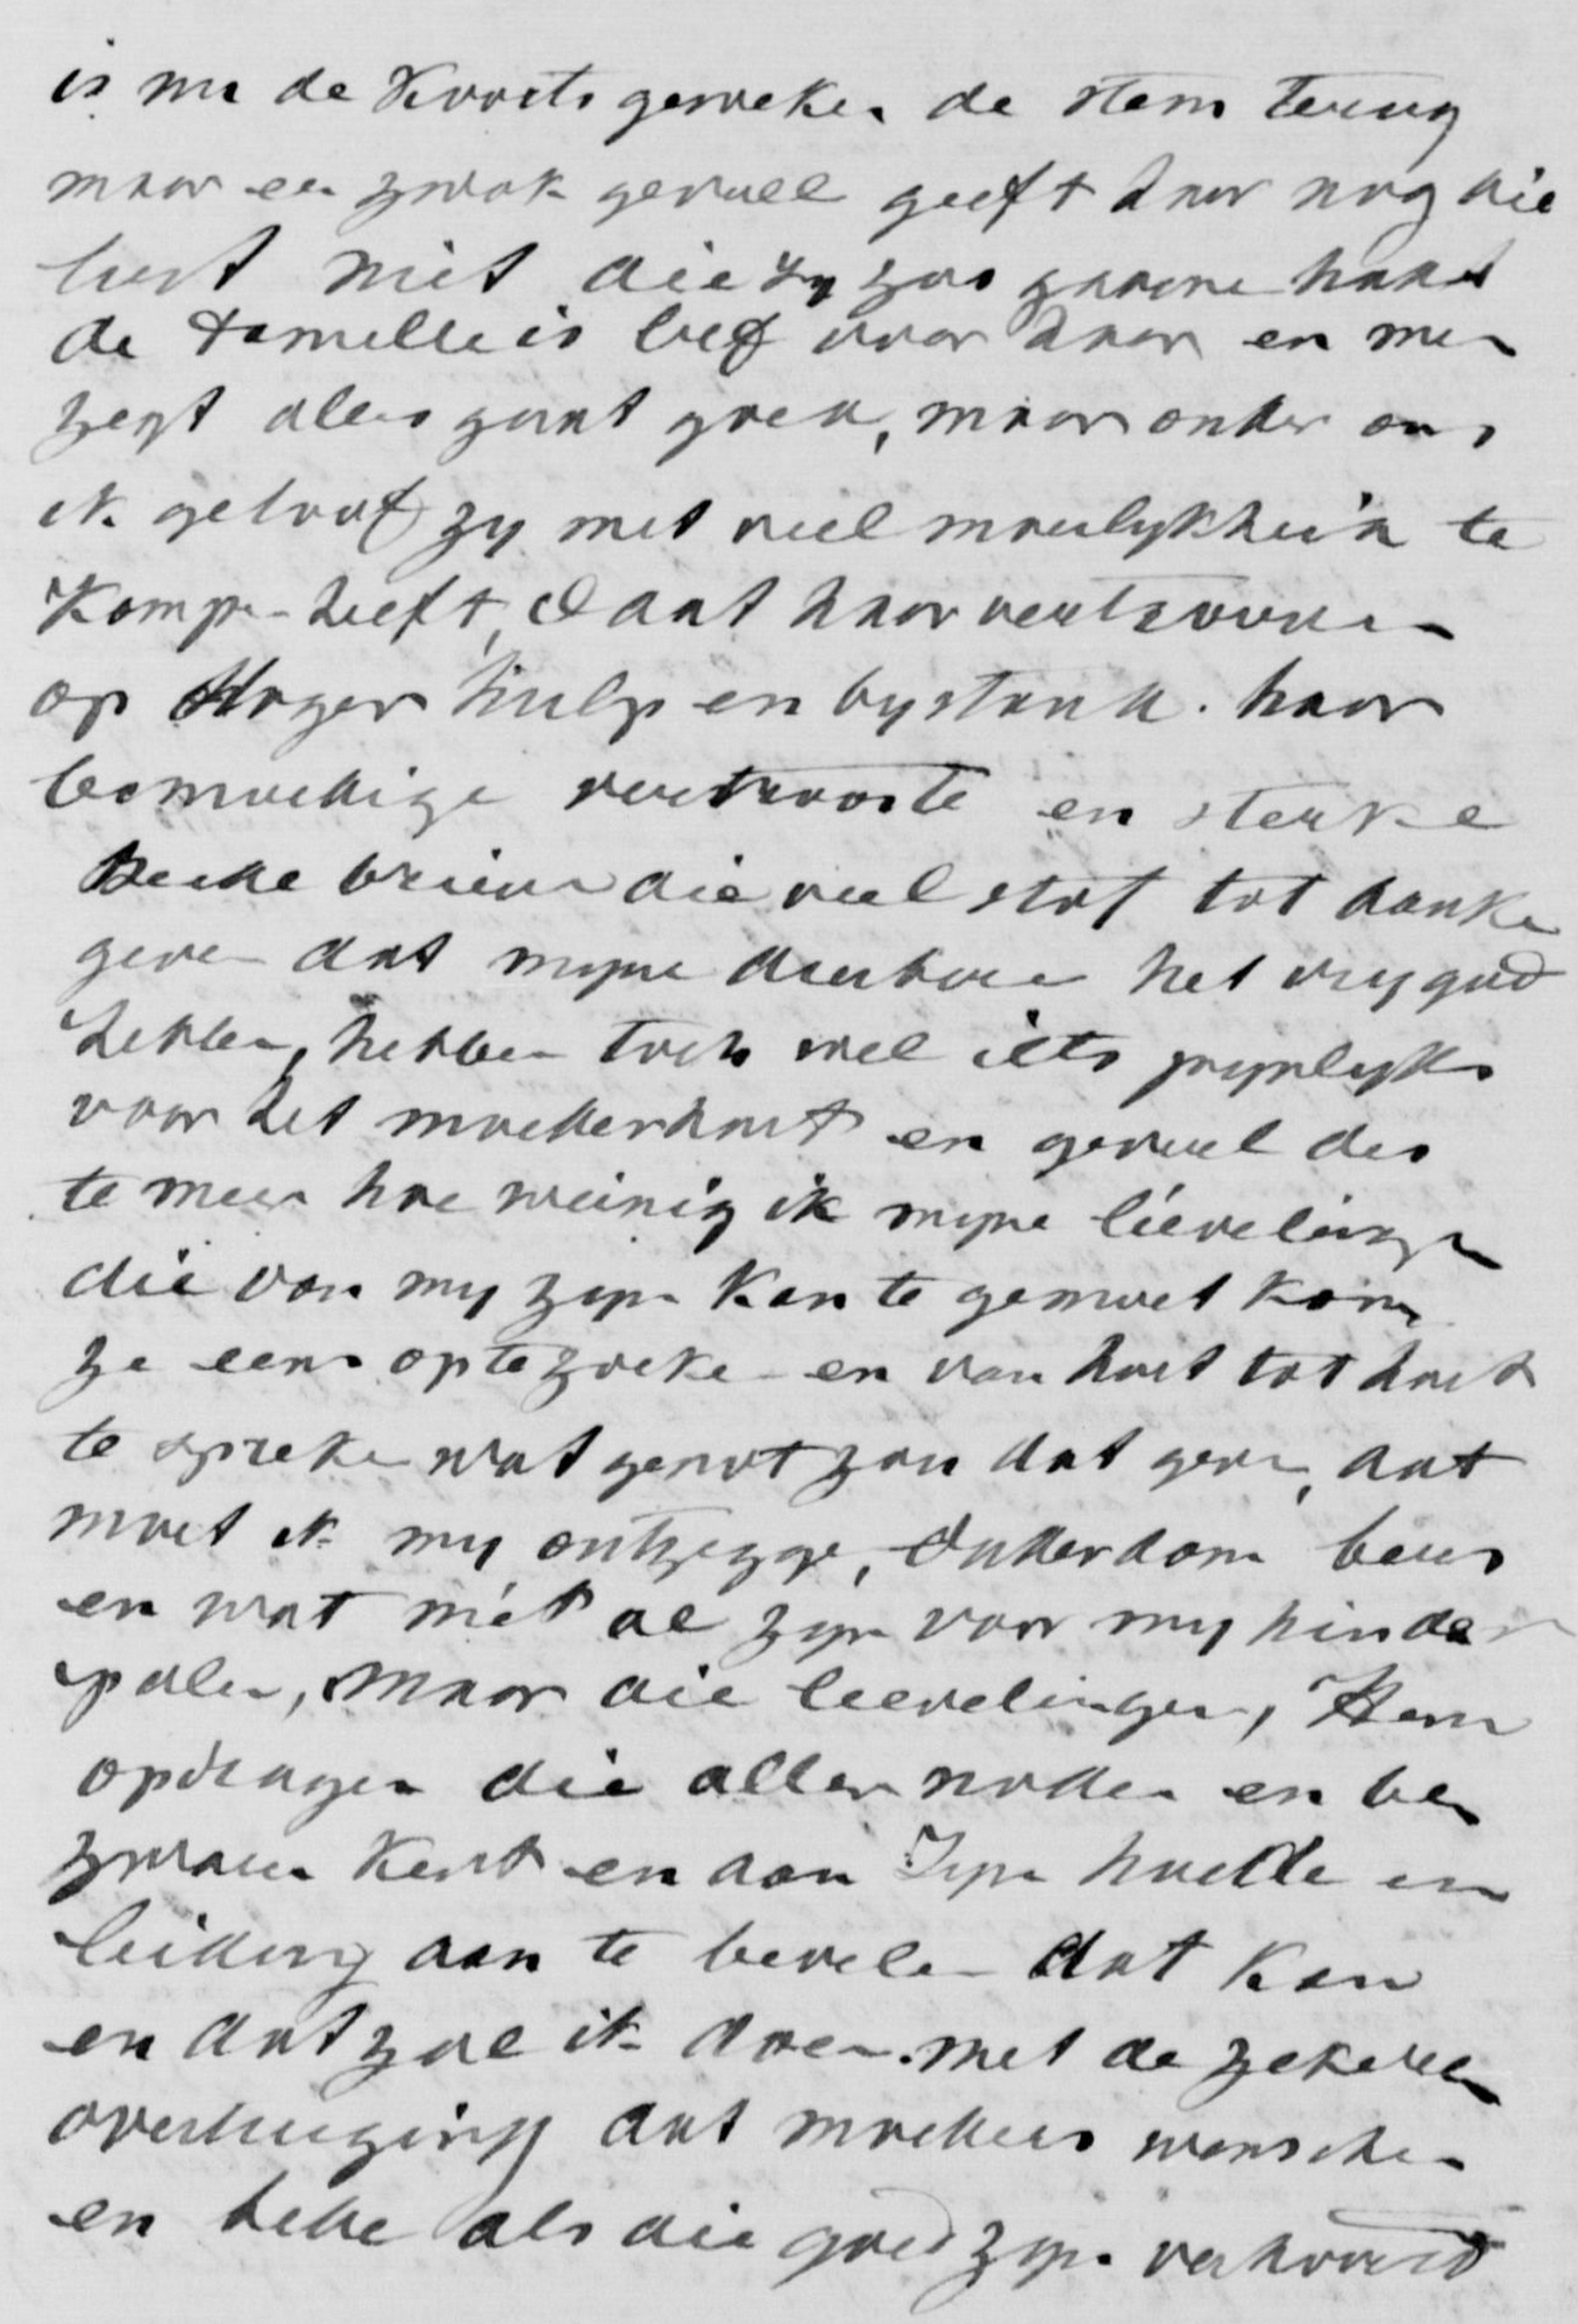 is nu de Koorts geweken de stem terug
maar een zwak gevoel geeft haar nog die
lust niet die zy zoo gaarne had
de familie is lief voor haar en men
zegt alles gaat goed, maar onder ons
ik geloof zy met veel moeilykheid te
Kampen heeft, daat haar vertrouwen
op Hoger hulp en bystand. haar
bemoedige vertrooste en sterke
Beide brieven die veel stof tot danke
geven dat myne dierbare het vry goed
hebben, hebben toch wel iets pynlyks
voor het moederhart en gevoel des
te meer hoe weinig ik myne lievelinge
die van my zyn Kan te gemoet kome
ze eens optezoeken en van hart tot hart
te spreken wat genot zou dat geven, dat
moet ik my ontzegge, Ouderdom beurs
en wat niet al zyn voor my hinder
palen, maar die leevelingen, Hem
opdragen die aller noden en be
zwaren Kent en aan Zyn hoede en
leiding aan te bevelen dat Kan
en dat zal ik doen. met de zekere
overtuiging dat moeders wenschen
en bede als die goed zyn verhoord